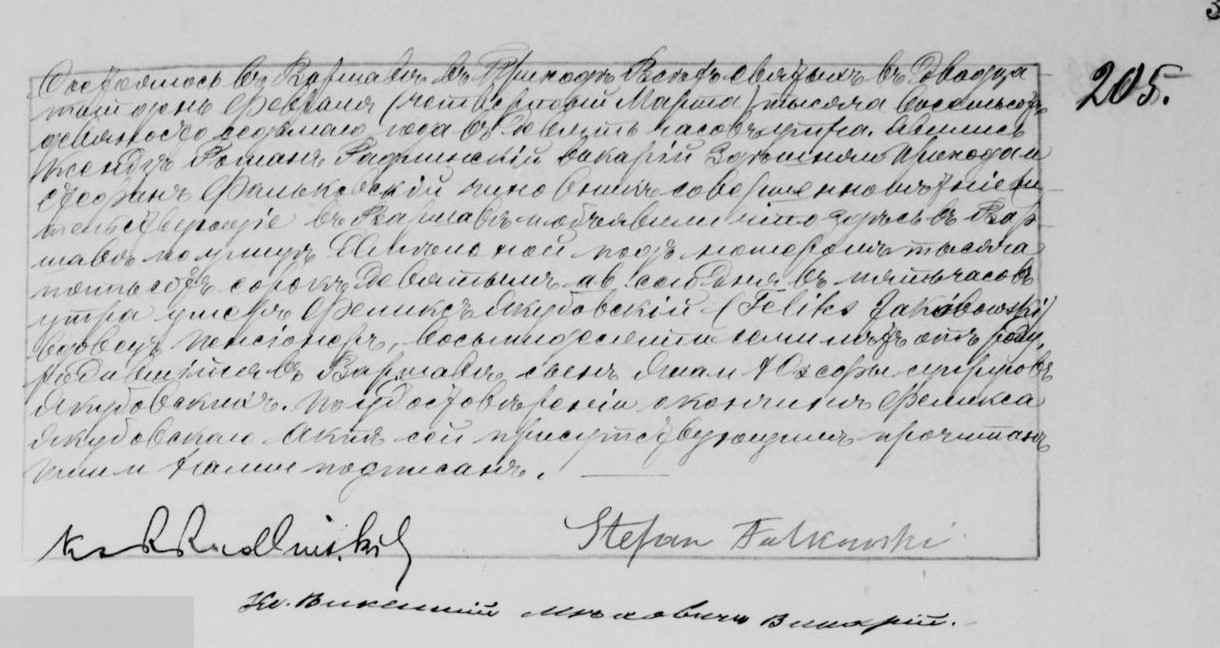 205.
Состоялось въ Варшавѣ въ Приходѣ Всѣхъ Святыхъ въ Двадца-
таго дня Февраля (четвертый Марта) тысяча восемьсотъ
девяносто седьмаго года въ Девять часовъ утра. Явились
Ксендзъ Романъ Радлинскій викарій здѣшняго Прихода и
Стефанъ Фальковскій чиновникъ совершеннолѣтніе жи-
тельствующіе въ Варшавѣ и объявили что здѣсь въ Вар-
шавѣ по улицѣ подъ номеромъ тысяча
пятьсотъ сорокъ Девятымъ дня въ пять часовъ
утра умеръ Феликсъ Якубовскій (Feliks Jakóbowski)
вдовецъ Пенсіонеръ, восьмидесяти семи лѣтъ отъ роду,
родившійся въ Варшавѣ, сынъ Яна и Юзефы супруговъ
Якубовскихъ. По удостовѣреніи о кончинѣ Феликса
Якубовскаго Актъ сей присутствующимъ прочитанъ
ими и Нами подписанъ.
Ks R Radliński Stefan Falkowski
Кс. Викентій Викарій.